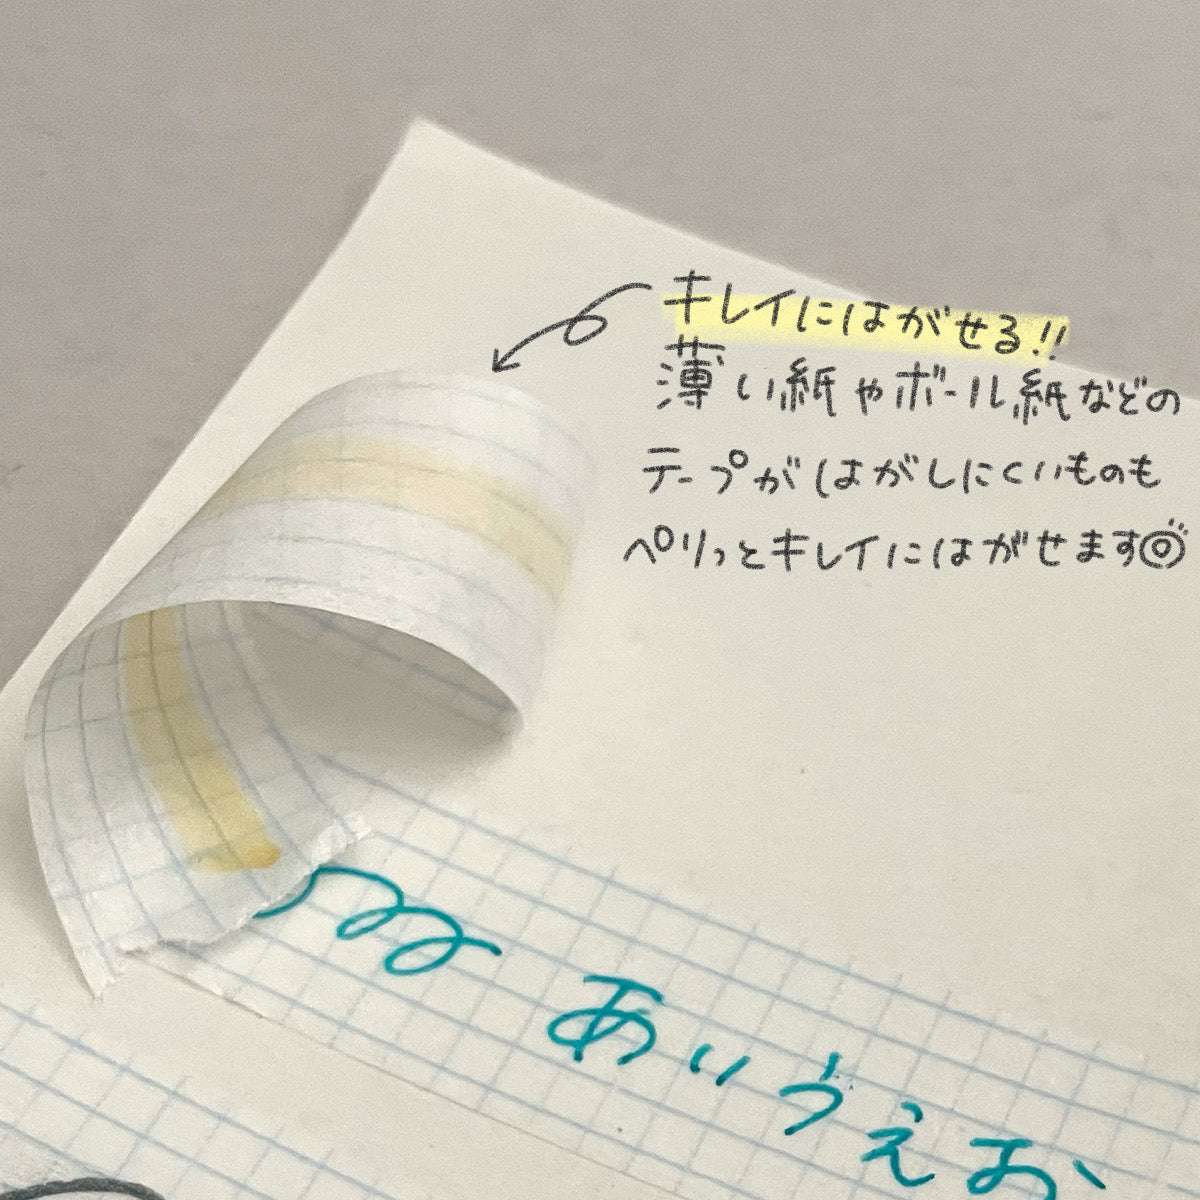 キレイにはがせる!!
薄い紙やボール紙などの
テープがはがしにくいものも
ペリっとキレイにはがせます◎
あいうえお